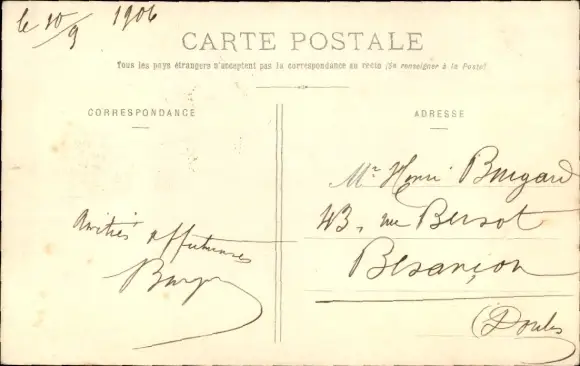 le 10/9 1906
CARTE POSTALE
Tous les pays étrangers n'acceptent pas la correspondance au recto (Se renseigner à la Poste)
CORRESPONDANCE
Amitiés affectueuses
ADRESSE
Mr Henri Burgard
43, rue Bersot
Besançon
(Doubs)